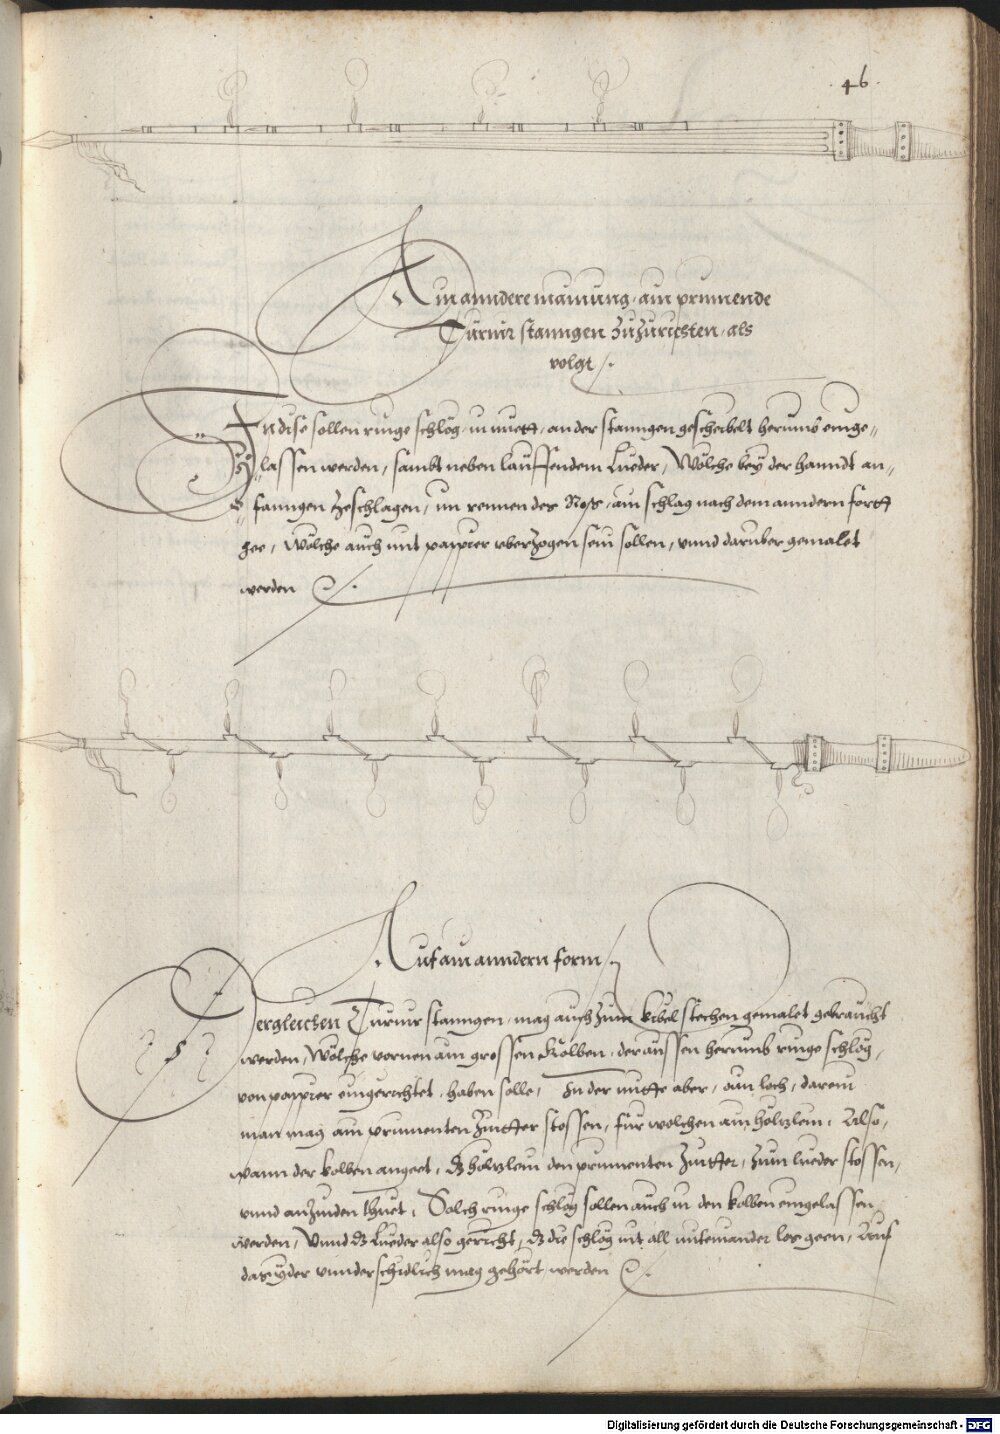 · 46 ·
Ain anndere mainung, ain prinnende
Turnir stanngen zuzurichsten, als
volgt
In dise sollen ringe schlög, in miett, an der stanngen gescheibelt herumb einge=
lassen werden, sambt neben lauffendem Lueder, Wölche bey der hanndt an=
fanngen zeschlagen, im rennen des Ross, ain schlag nach dem anndern fortt
gee, Wölche auch mit pappier vberzogen sein sollen, vnnd darüber gemalet
werden
Auf ain anndern form
Dergleichen Turnir stanngen, mag auch zum kibel stechen gemalet gebraucht
werden, Wölche vornen ain grossen Kolben, der aussen herumb ringe schlög,
von pappier eingerichtet, haben solle, In der mitte aber, ain loch, darein
man mag ain prinnenten Zintter stossen, für wolchen ain hölzlein, Also,
wann der kolben angeet, dz hölzlein den prinnenten Zintter, zum lueder stossen,
vnnd anzünden thuet, Solch ringe schlög sollen auch in den kolben eingelassen
werden, Vnnd dz Lueder also gericht, dz die schlög nit all miteinander los geen, Auf
das yeder vnnderschidlich mag gehört werden
Digitalisierung gefördert durch die Deutsche Forschungsgemeinschaft - DFG